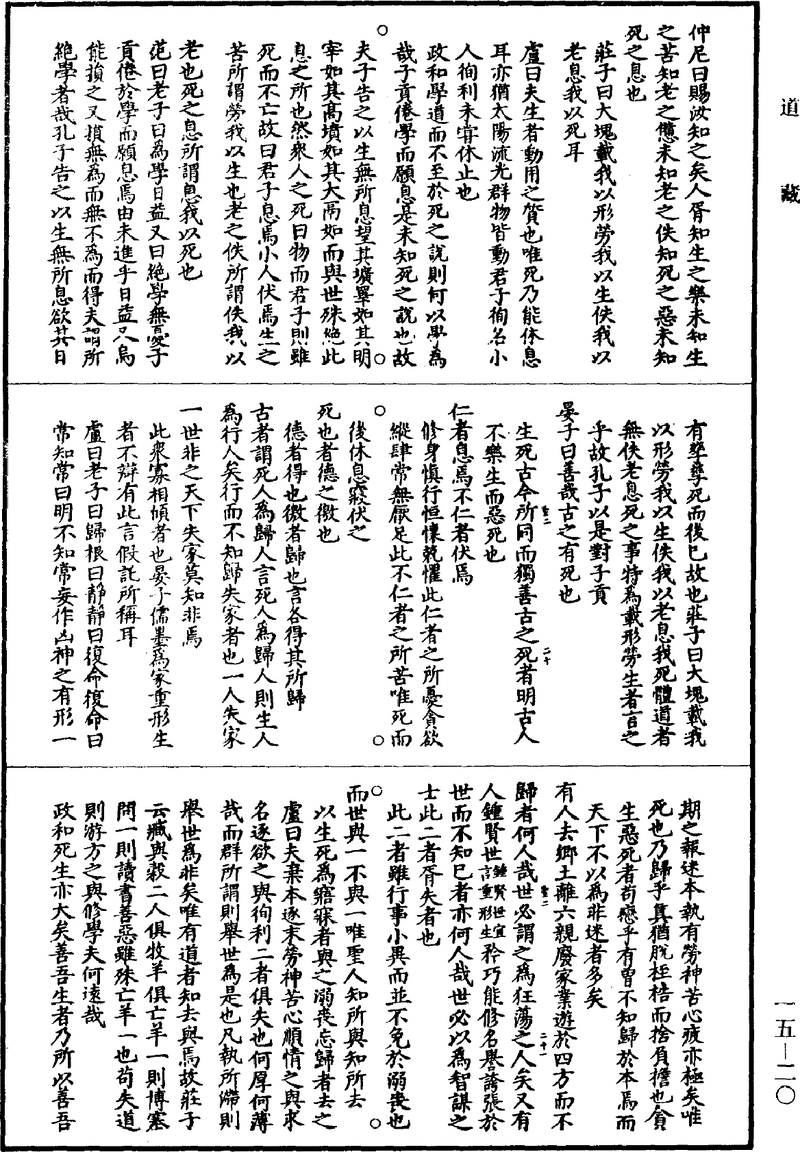 道藏
仲尼曰賜汝知之矣人胥知生之樂未知生
之苦知老之憊未知老之佚知死之惡未知
死之息也
莊子曰大塊載我以形勞我以生佚我以
老息我以死耳
盧曰夫生者動用之質也唯死乃能休息
耳亦猶太陽流光群物皆動君子徇名小
人徇利未嘗休止也
政和學道而不至於死之說則何以學為
哉子貢倦學而願息是未知死之說也故
夫子告之以生無所息望其壙睪如其明
宰如其高墳如其大鬲如而與世殊絕此
息之所也然衆人之死曰物而君子則雖
死而不亡故曰君子息焉小人伏焉生之
苦所謂勞我以生也老之佚所謂佚我以
老也死之息所謂息我以死也
范曰老子曰為學日益又曰絕學無憂子
貢倦於學而願息焉由未進乎日益又烏
能損之又損無為而無不為而得夫謂所
絕學者哉孔子告之以生無所息欲其日
有孳孳死而後已故也莊子曰大塊載我
以形勞我以生佚我以老息我死體道者
無佚老息死之事特為載形勞生者言之
乎故孔子以是對子貢
晏子曰善哉古之有死也
生死古今所同而獨善古之死者明古人
不樂生而惡死也
仁者息焉不仁者伏焉
修身慎行恒懷兢懼此仁者之所憂貪欲
縱肆常無厭足此不仁者之所苦唯死而
後休息寢伏之
死也者德之徼也
德者得也徼者歸也言各得其所歸
古者謂死人為歸人言死人為歸人則生人
為行人矣行而不知歸失家者也一人失家
一世非之天下失家莫知非焉
此衆寡相傾者也晏子儒墨為家重形生
者不辯有此言假託所稱耳
盧曰老子曰歸根曰靜靜曰復命復命曰
常知常曰明不知常妄作凶神之有形一
期之報迷本執有勞神苦心疲亦極矣唯
死也乃歸乎真猶脫桎梏而捨負擔也貪
生惡死者苟戀乎有曾不知歸於本焉而
天下不以為非迷者多矣
有人去鄉土離六親廢家業遊於四方而不
歸者何人哉世必謂之為狂蕩之人矣又有
人鍾賢世鍾賢世宜言重形生矜巧能修名譽誇張於
世而不知已者亦何人哉世必以為智謀之
士此二者胥失者也
此二者雖行事小異而並不免於溺喪也
而世與一不與一唯聖人知所與知所去
以生死為寤寐者與之溺喪忘歸者去之
盧曰夫棄本逐末勞神苦心順情之與求
名逐欲之與徇利二者俱失也何厚何薄
哉而群所謂則舉世為是也凡執所滯則
舉世為非矣唯有道者知去與焉故莊子
云臧與穀二人俱牧羊俱亡羊一則博塞
問一則讀書善惡雖殊亡羊一也苟失道
則游方之與修學夫何遠哉
政和死生亦大矣善吾生者乃所以善吾
一五—二〇